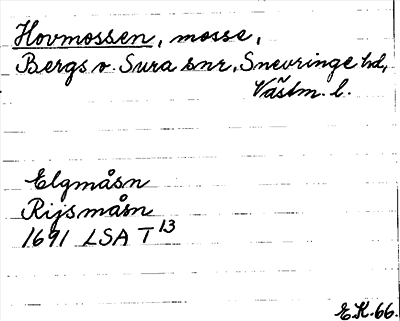 Hovmossen, mosse,
Bergs o. Sura snr, Snevringe hd,
Västm. l.
Elgmåsn
Rijsmåsn
1691 LSA T 13
E.K. 66.